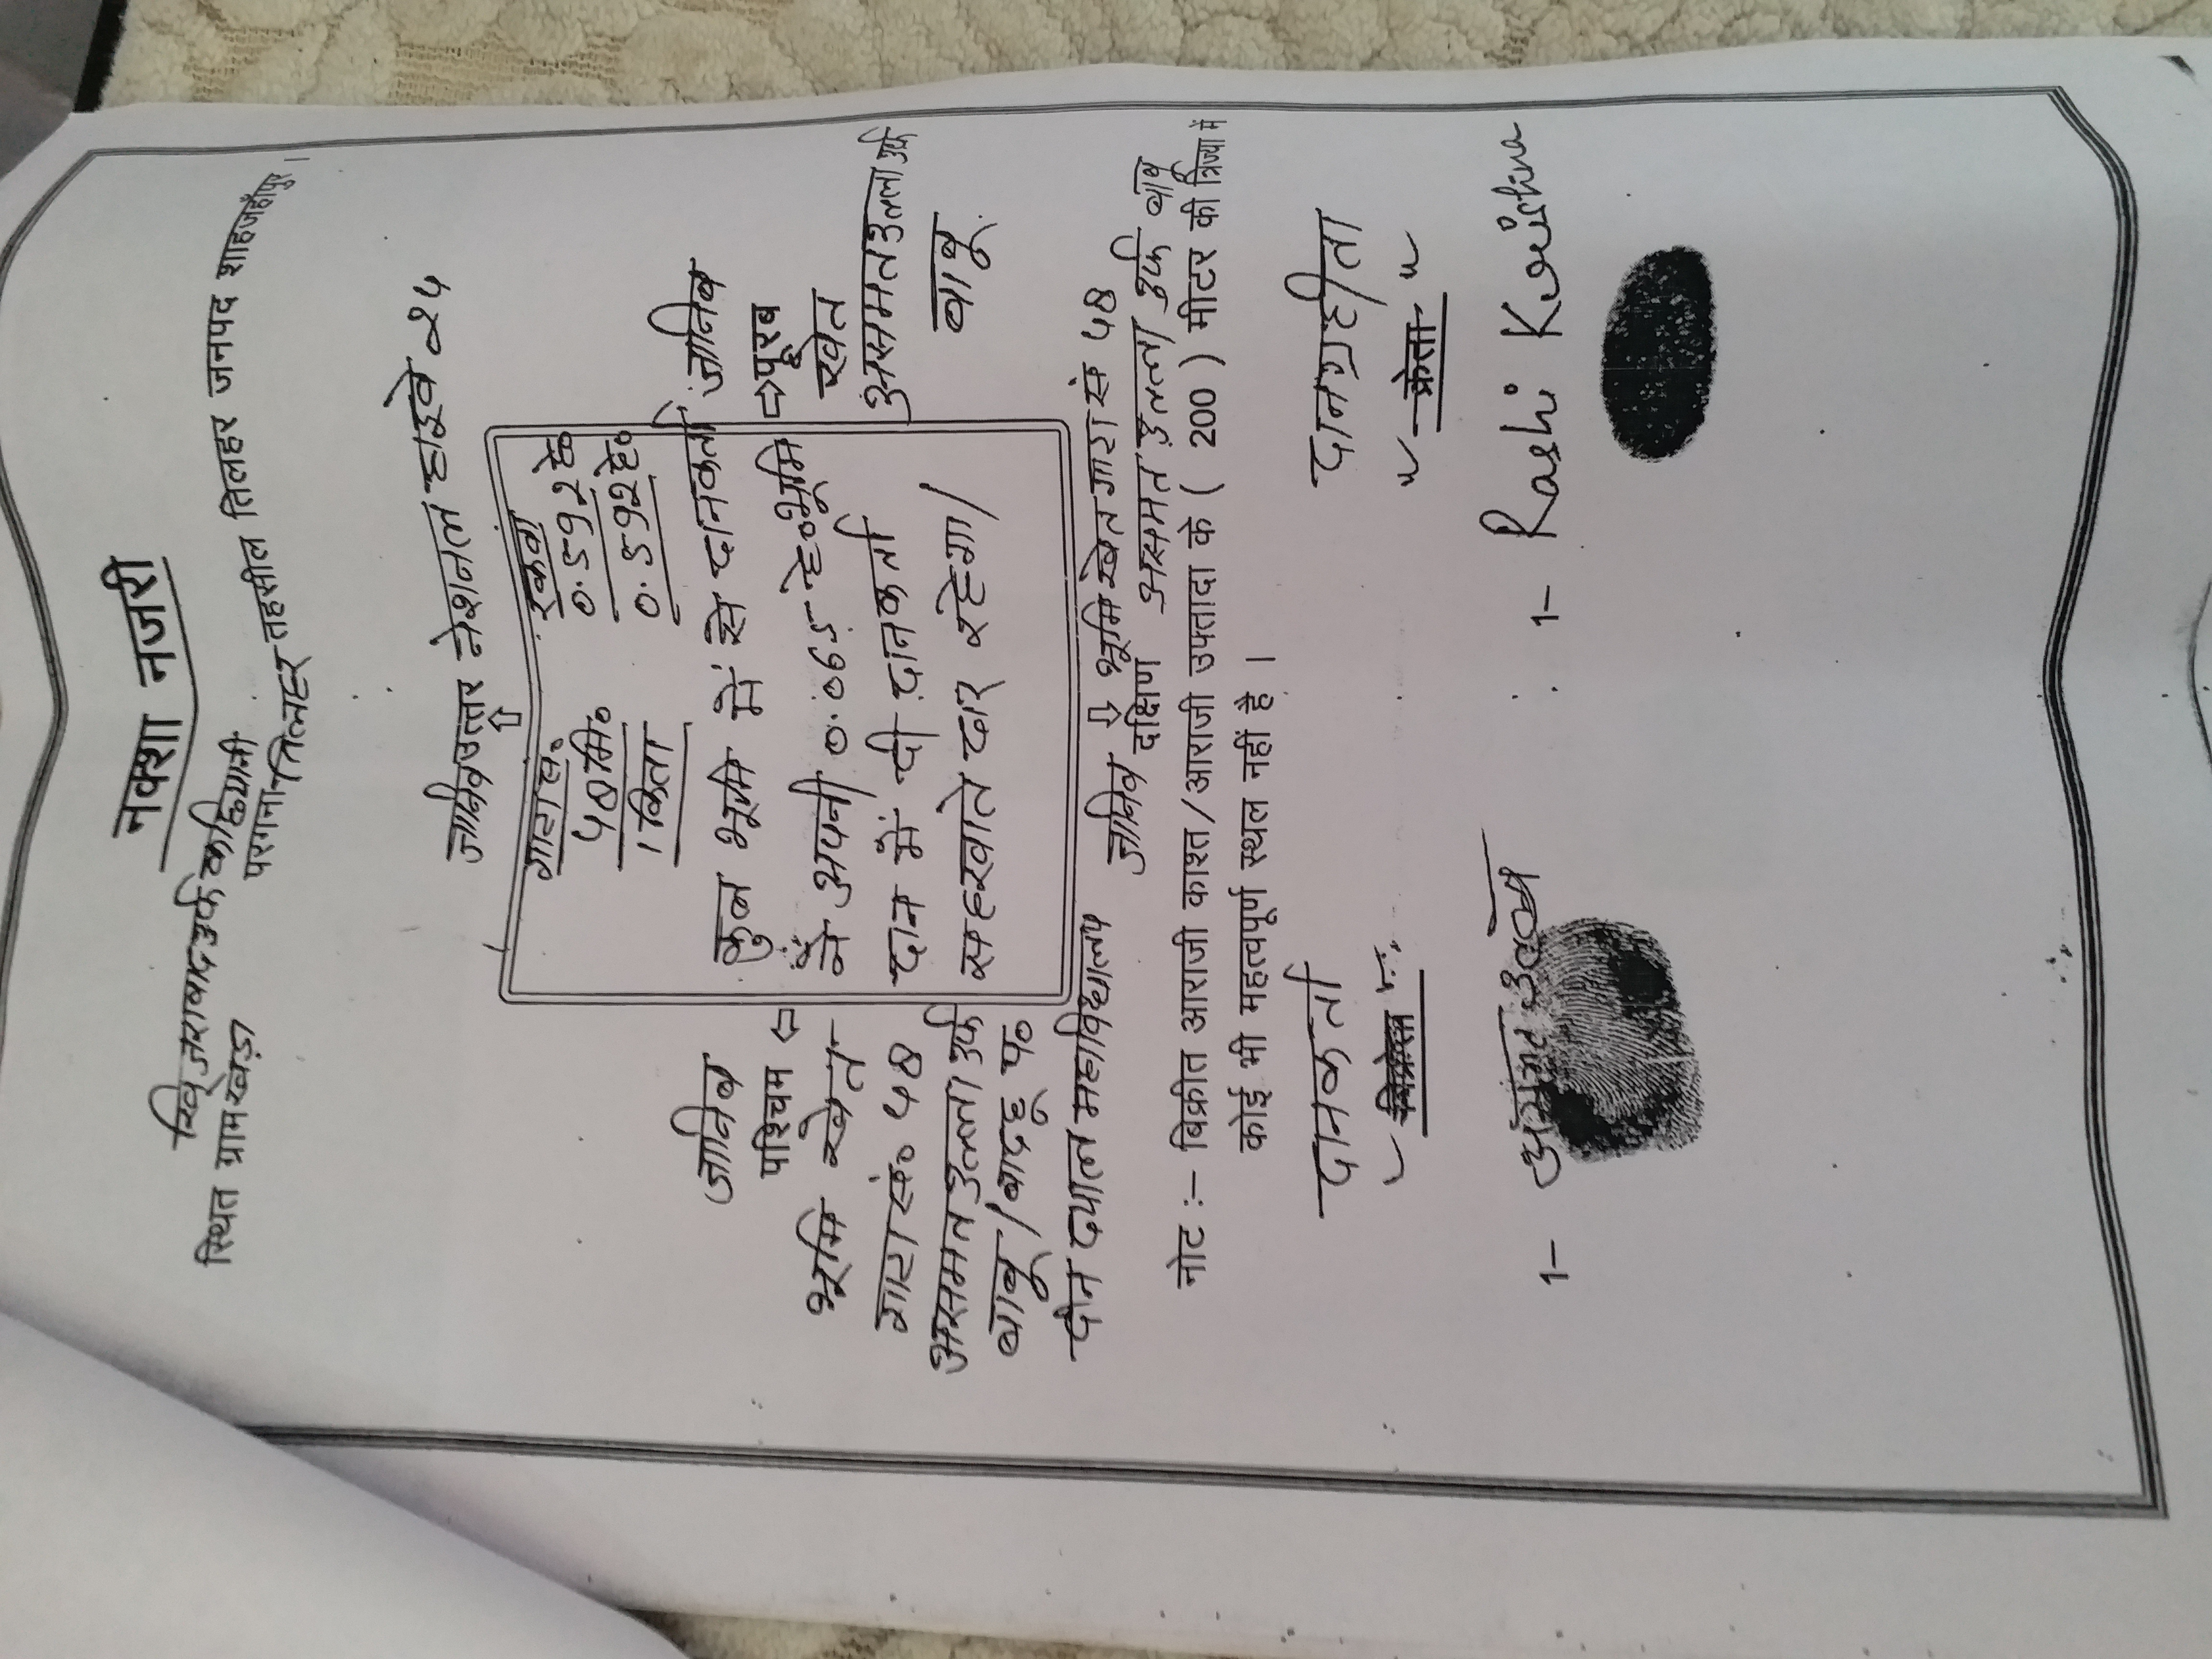 नक्शा नजरी
खिजराबाद उर्फ कछियानी
स्थित ग्राम खेड़ा परगना तिलहर तहसील तिलहर जनपद शाहजहाँपुर ।
जानिब उत्तर नेशनल हाइवे 24
गाटा सं० रकवा
48मि० 0.592 हे०
1 किता 0.592 हे०
कुल भूमि में से दानकर्ता
ने अपनी 0.065 हे० भूमि
दान में दी दानकर्ता
सहखातेदार रहेगा।
जानिब
पश्चिम
भूमि खेत
गाटा सं० 48
असमत उल्ला उर्फ
बाबू / बादहू प०
दीन दयाल महाविद्यालय
जानिब
पूरब
खेत
असमत उल्ला उर्फ
बाबू
जानिब दक्षिण भूमि खेत गाटा सं 48
असमत उल्ला उर्फ बाबू
नोट :– बिक्रीत आराजी काश्त/आराजी उफ्तादा के ( 200 ) मीटर की त्रिज्या में
कोई भी महत्वपूर्ण स्थल नहीं है ।
दानकर्ता दानग्रहीता
विक्रेता " क्रेता "
1– असमत उल्ला 1– Rashi Krishna